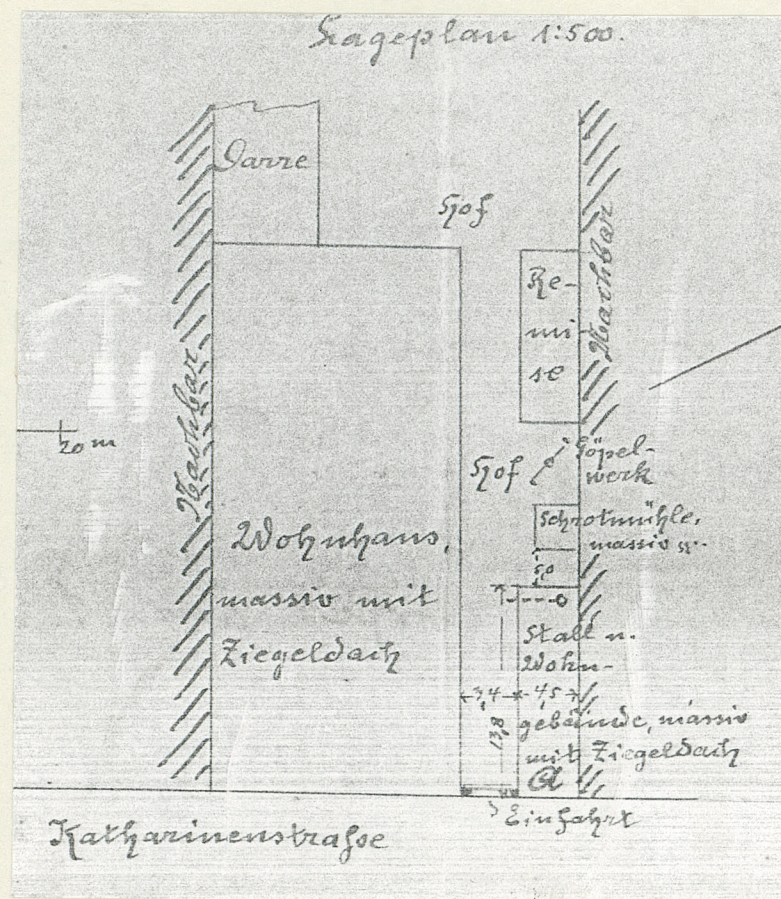 Lageplan 1:500.
Darre
Hof
Re-
mi-
se
Nachbar
Nachbar
20 m
Hof
Göpel-
werk
Schrotmühle,
massiv
5,0
Wohnhaus,
massiv mit
Ziegeldach
Stall u.
Wohn-
3,4
4,5
13,8
gebäude, massiv
mit Ziegeldach
Einfahrt
Katharinenstraſse